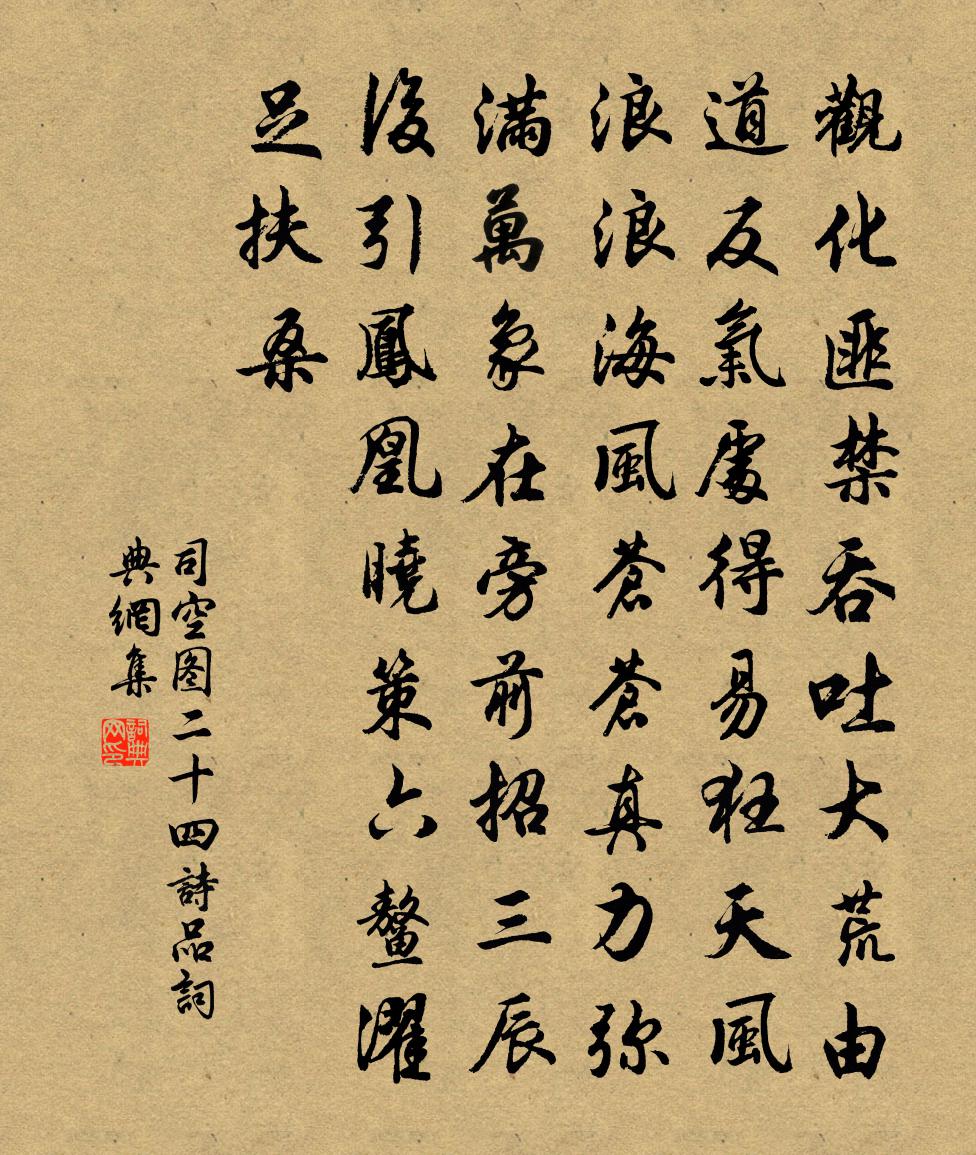 觀化匪禁吞吐大荒由
道反氣處得易狂天風
浪浪海風蒼蒼真力弥
滿萬象在旁前招三辰
後引鳳凰曉策六鼇濯
足扶桑
司空图二十四詩品詞
典網集
詞典
网印